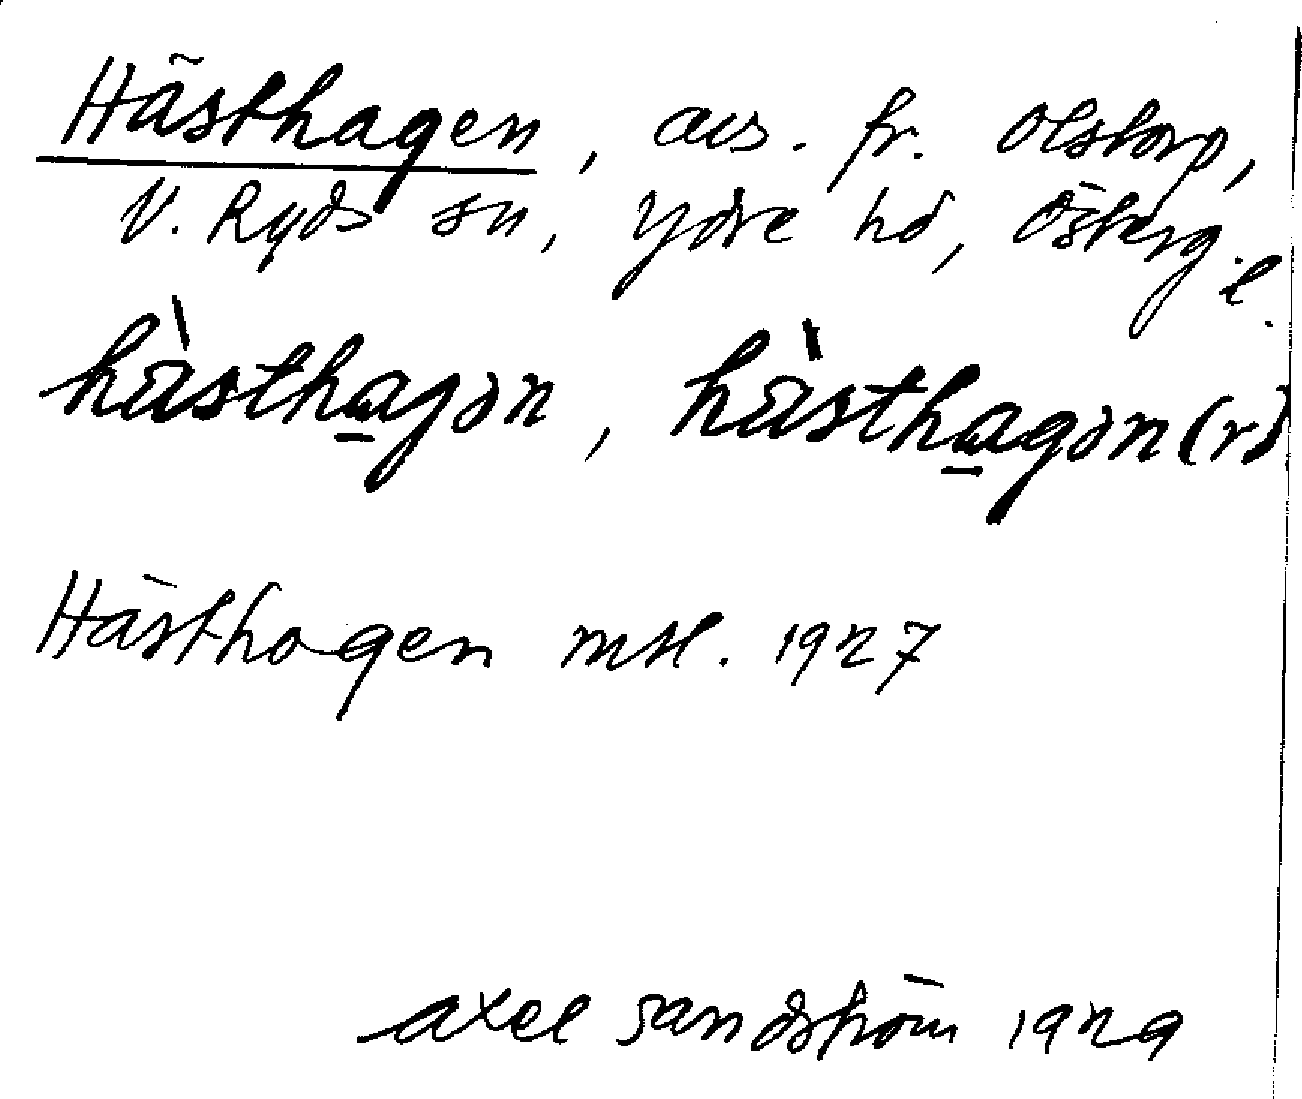 Hästhagen, avs. fr. Olstorp,
V. Ryds sn, Ydre hd, Österg. l.
hàsthagən, hàsthagən(r)
Hästhagen mtl. 1927
Axel Sandström 1929